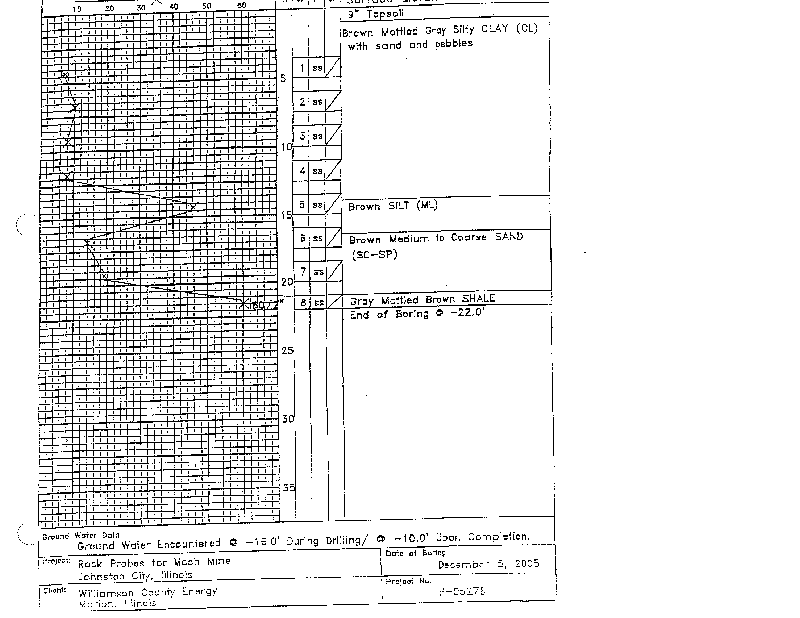 10 20 30 40 50 60
9" Topsoil
Brown Mottled Gray Silty CLAY (CL)
with sand and pebbles
1 ss
5
2 ss
3 ss
10
4 ss
5 ss Brown SILT (ML)
15
6 ss Brown Medium to Coarse SAND
(SC-SP)
7 ss
20
8 ss Gray Mottled Brown SHALE
End of Boring @ -22.0'
25
30
35
Ground Water Data
Ground Water Encountered @ During Drilling/ @ -10.0' Upon Completion.
Project: Rock Probes for Mach Mine
Johnston City, Illinois
Date of Boring
December 5, 2005
Client: Williamson County Energy
Marion, Illinois
Project No.